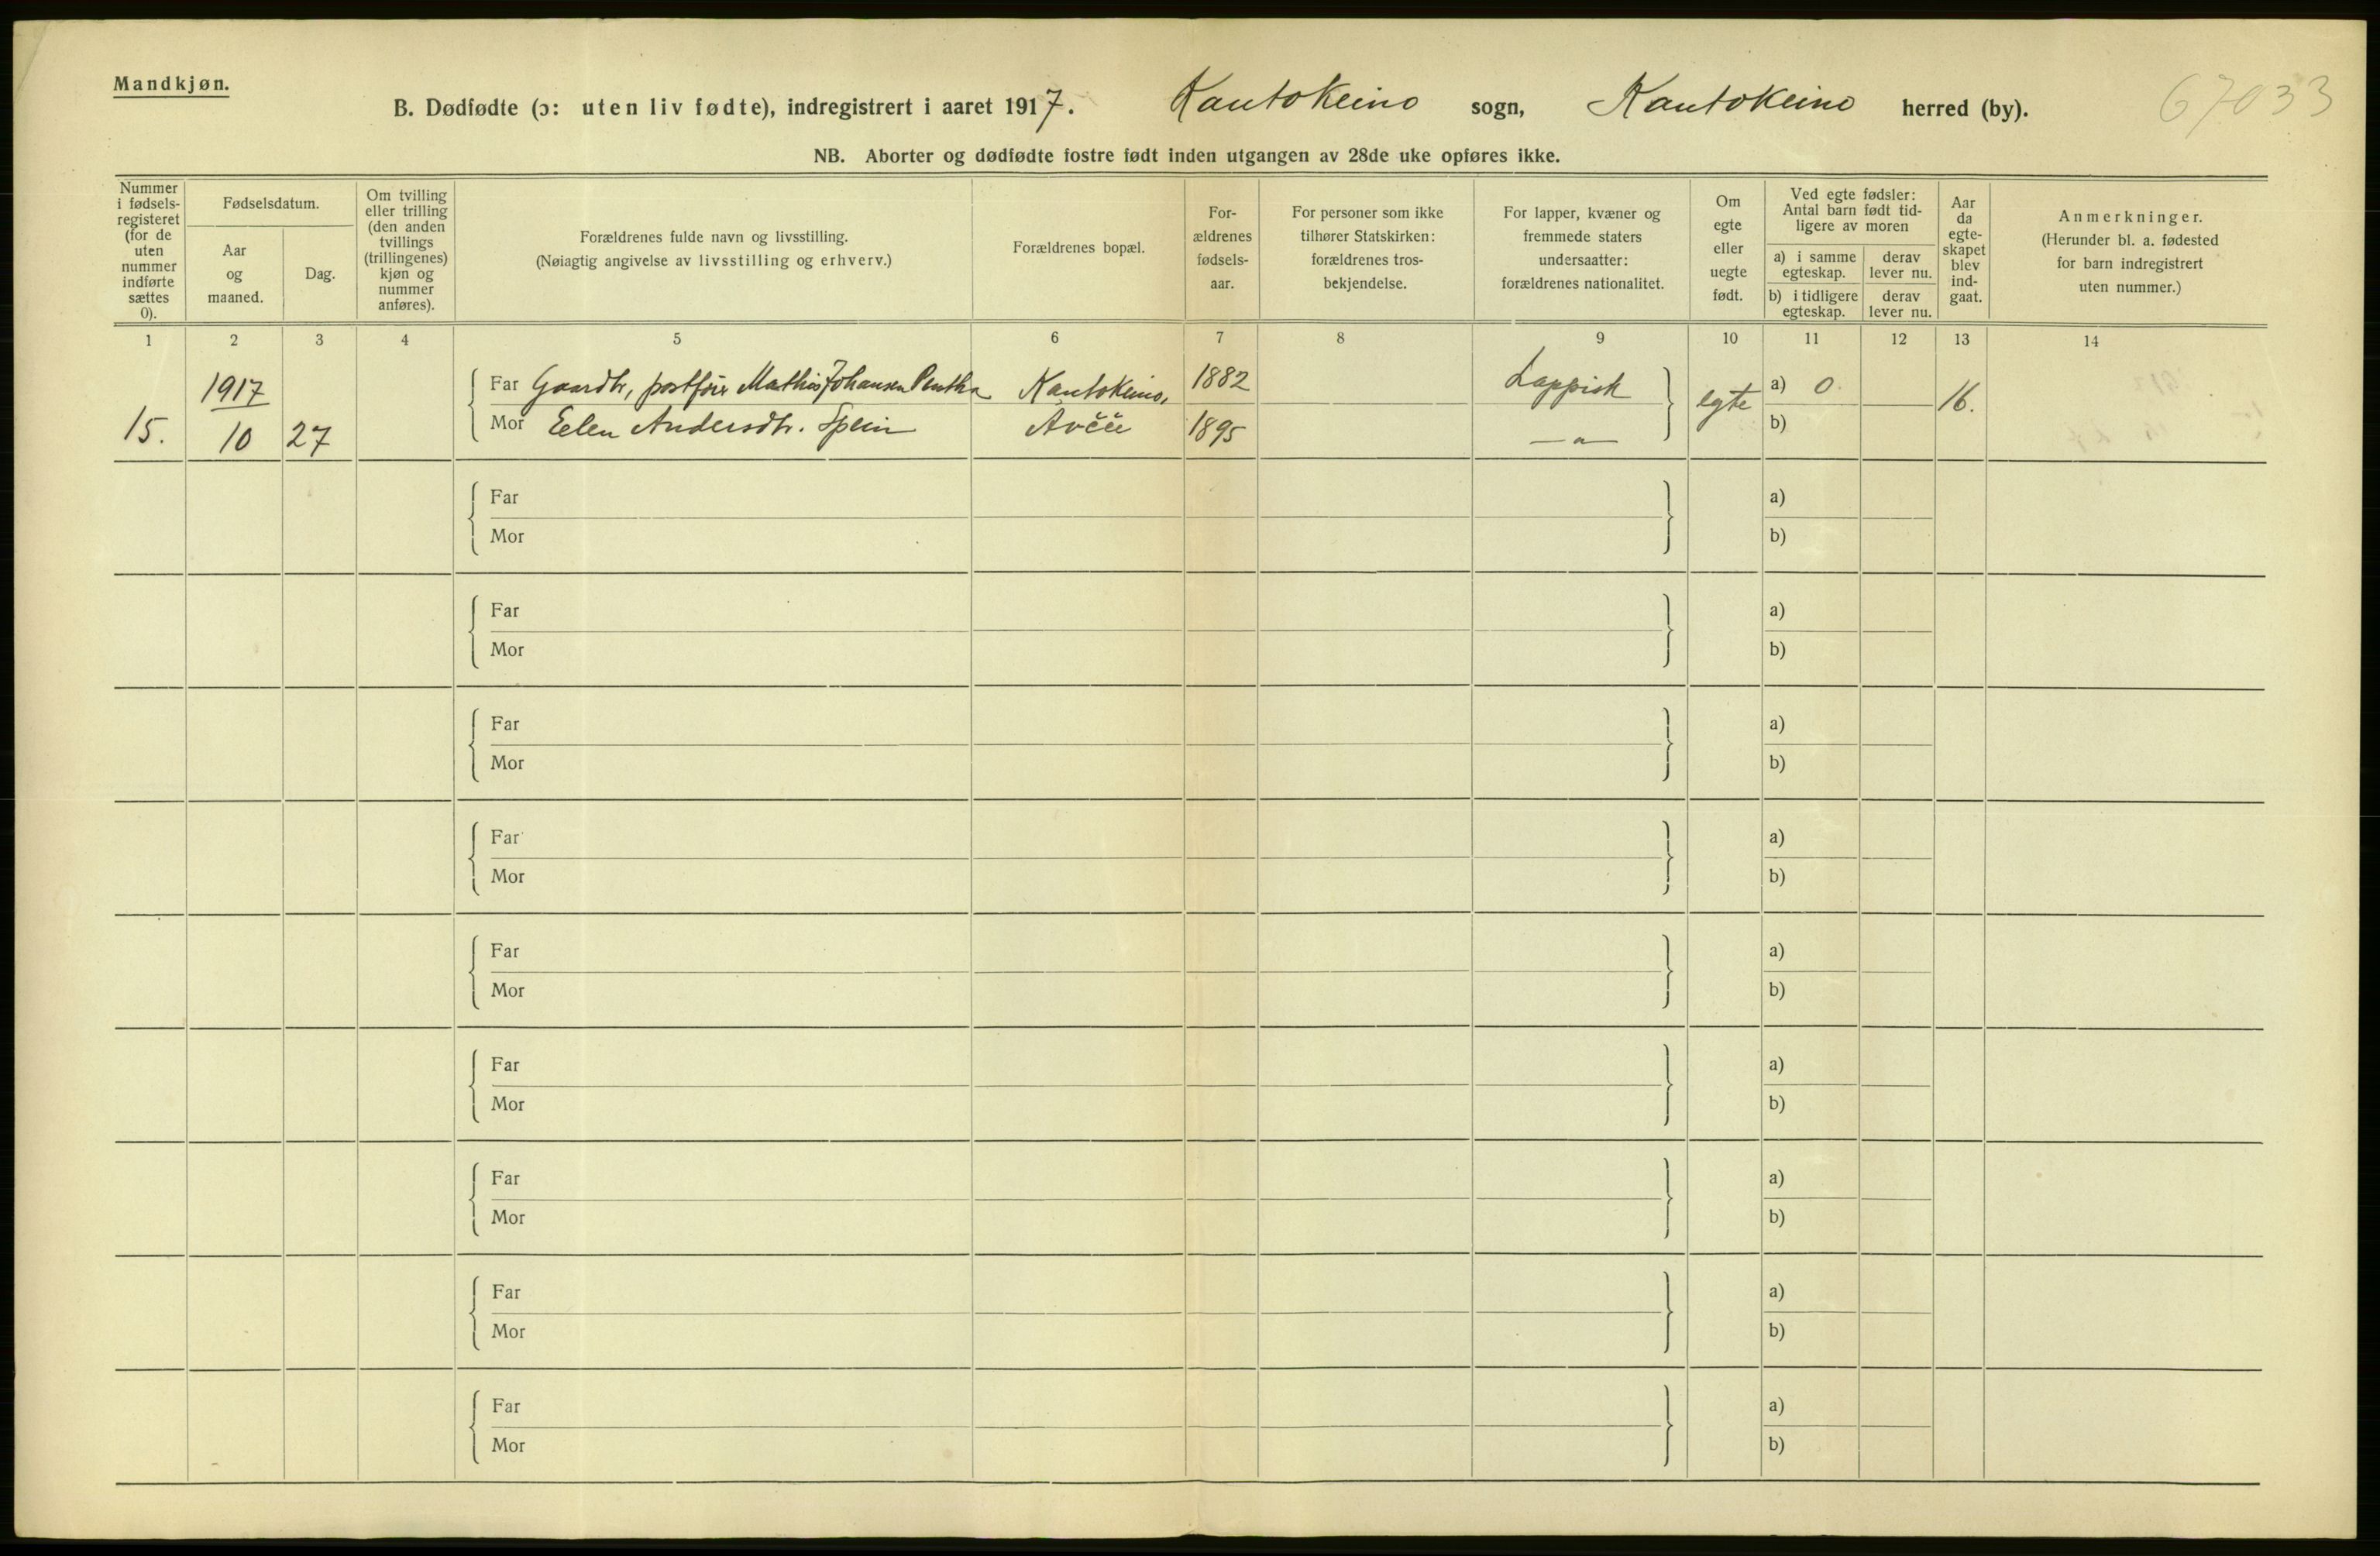 Mandkjøn.
B. Dødfødte (ɔ: uten liv fødte), indregistrert i aaret 1917. Kautokeino sogn, Kautokeino herred (by). 67033
NB. Aborter og dødfødte fostre født inden utgangen av 28de uke opføres ikke.
Nummer i fødsels-registeret (for de uten nummer indførte sættes 0).
Fødselsdatum.
Aar og maaned.
Dag.
Om tvilling eller trilling (den anden tvillings (trillingenes) kjøn og nummer anføres).
Forældrenes fulde navn og livsstilling.
(Nøiagtig angivelse av livsstilling og erhverv.)
Forældrenes bopæl.
For-ældrenes fødsels-aar.
For personer som ikke tilhører Statskirken: forældrenes tros-bekjendelse.
For lapper, kvæner og fremmede staters undersaatter: forældrenes nationalitet.
Om egte eller uegte født.
Ved egte fødsler: Antal barn født tid-ligere av moren
a) i samme egteskap.
derav lever nu.
b) i tidligere egteskap.
derav lever nu.
Aar da egte-skapet blev ind-gaat.
Anmerkninger.
(Herunder bl. a. fødested for barn indregistrert uten nummer.)
1 2 3 4 5 6 7 8 9 10 11 12 13 14
15. 1917 10 27
Far Gaardbr, postfører Mathis Johansen Pentha Kautokeino, 1882 Lappisk egte a) 0. 16.
Mor Eelen Andersdtr. Spein Avčče 1895 — " — b)
Far a)
Mor b)
Far a)
Mor b)
Far a)
Mor b)
Far a)
Mor b)
Far a)
Mor b)
Far a)
Mor b)
Far a)
Mor b)
Far a)
Mor b)
Far a)
Mor b)